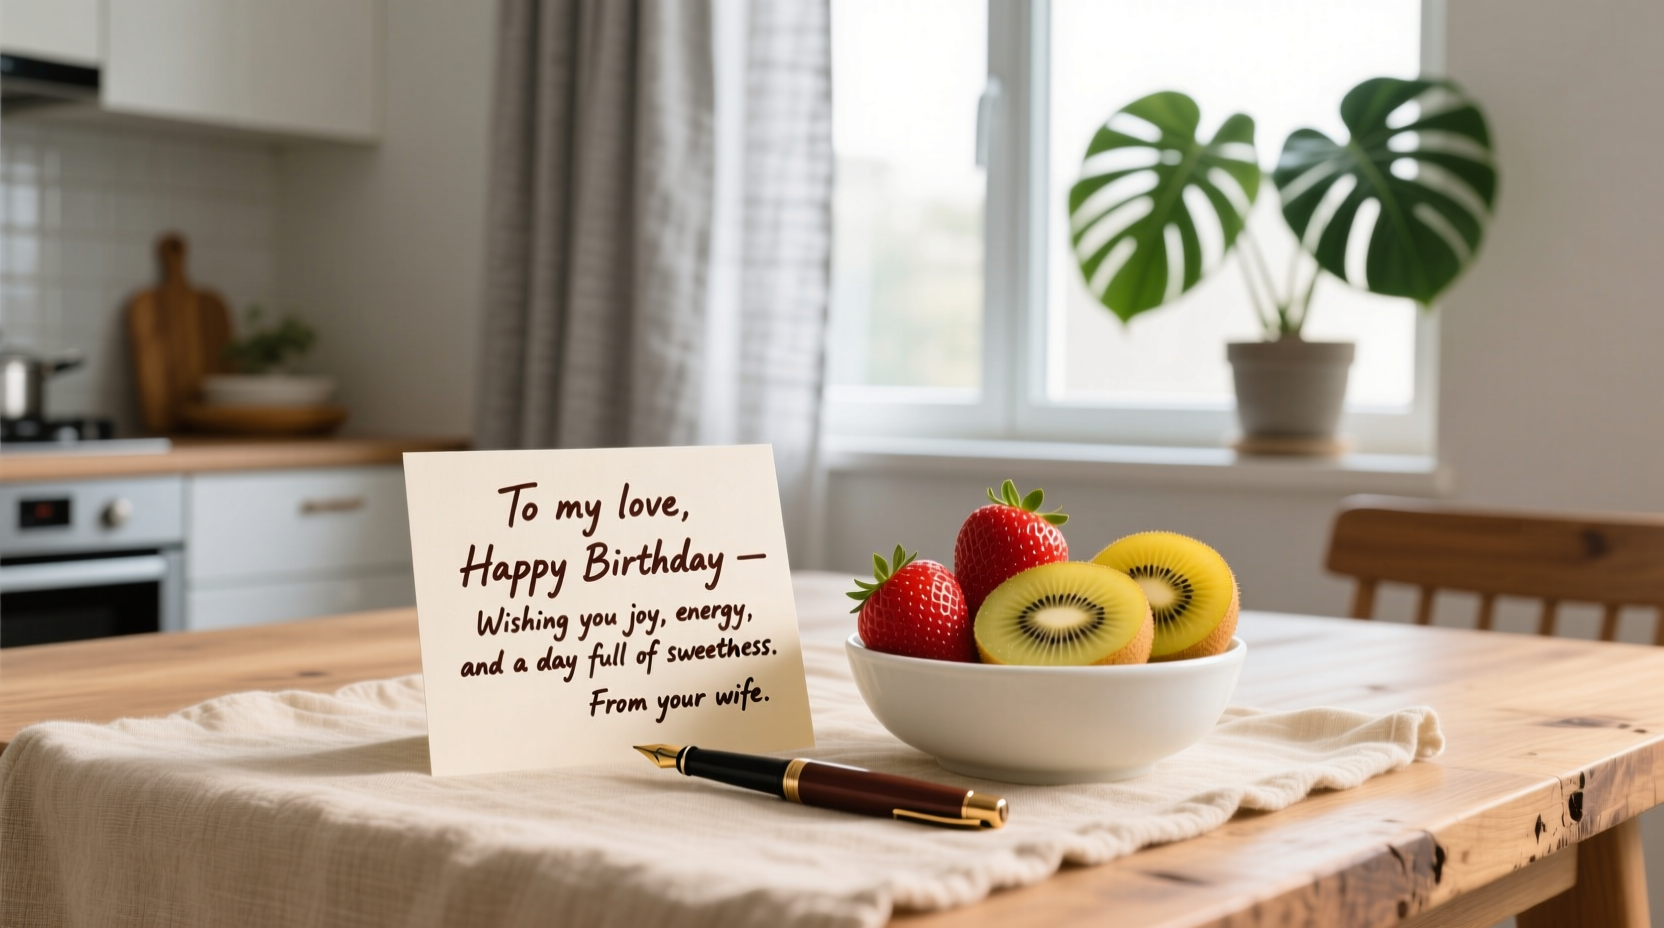 To my love,
Happy Birthday —
Wishing you joy, energy,
and a day full of sweethess.
From your wife.